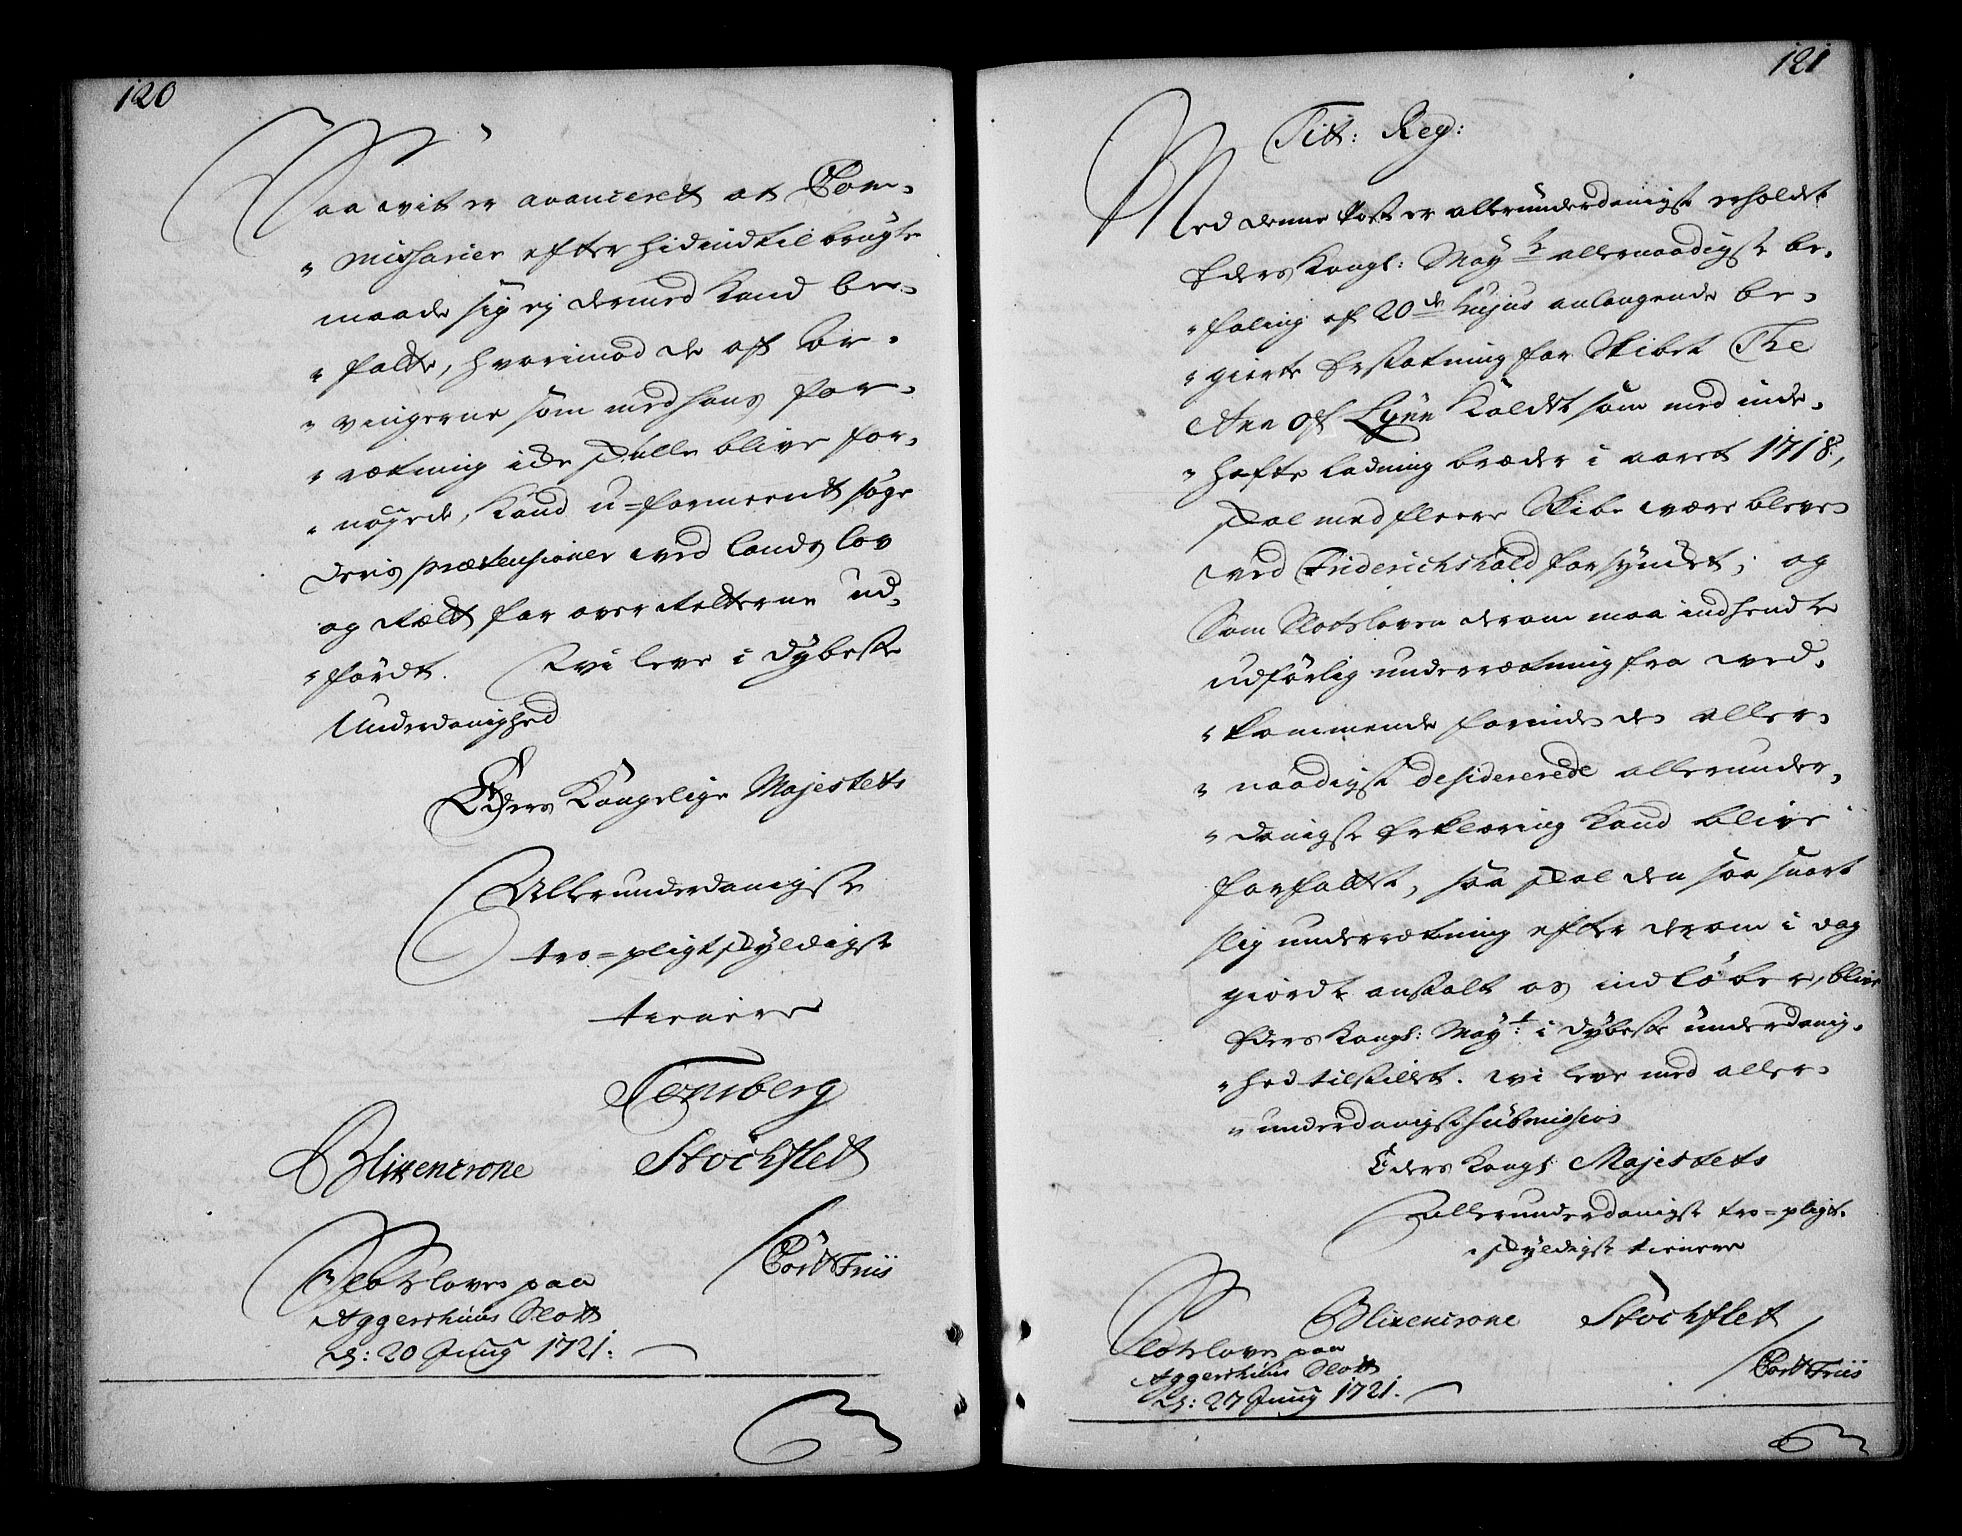 120
Saa vit er avanceret at Com-
" misSarier efter hidindtil brugte
maade sig ej dermed kand be-
" fatte, hvorimod de af Ar-
" vingerne som med hans for-
" rætning icke skulle blive for-
" nøyede, kand u-formeendt søge
deris prætensioner ved lands lov
og Rætt for overretterne ud-
" ført. Wi leve i dybeste
Underdanighed
Eders Kongelige Majestets
Allerunderdanigste
tro-pligtskyldigste
tienere
Tonsberg
Blixencrone Stochflett
Slotsloven paa
Aggershuus Slott
d: 20 Junij 1721.
Cort Friis
121
Tit: Reg:
Med denne Post er allerunderdanigst erholdet
Eders Kongl: May:ts allernaadigste be-
" faling af 20de hujus anlangende be-
" gierte Erstatning for Skibet The
Ann of Lynn kaldet som med inde-
" hafte ladning bræder i aaret 1718,
skal med fleere Skibe være bleven
ved Friderichshald forsyncket; og
Som Slotsloven derom maa indhendte
udførlig underrætning fra ved-
" kommende forinden den aller-
" naadigst desidererede allerunder-
" danigste Erklæring kand blive
forfattet, saa skal den saa snart
slig underrætning efter derom i dag
giordt anstalt os indløber, blive
Eders Kongl: May:t i dybeste underdanig-
" hed tilstillet. Wi leve med aller-
" underdanigst submission
Eders Kongl: Majestets
Allerunderdanigste tro-pligt-
" skyldigste tienere
Blixencrone Stochflet
Slotsloven paa
Aggershuus Slott
d: 27 Junij 1721.
Cort Friis